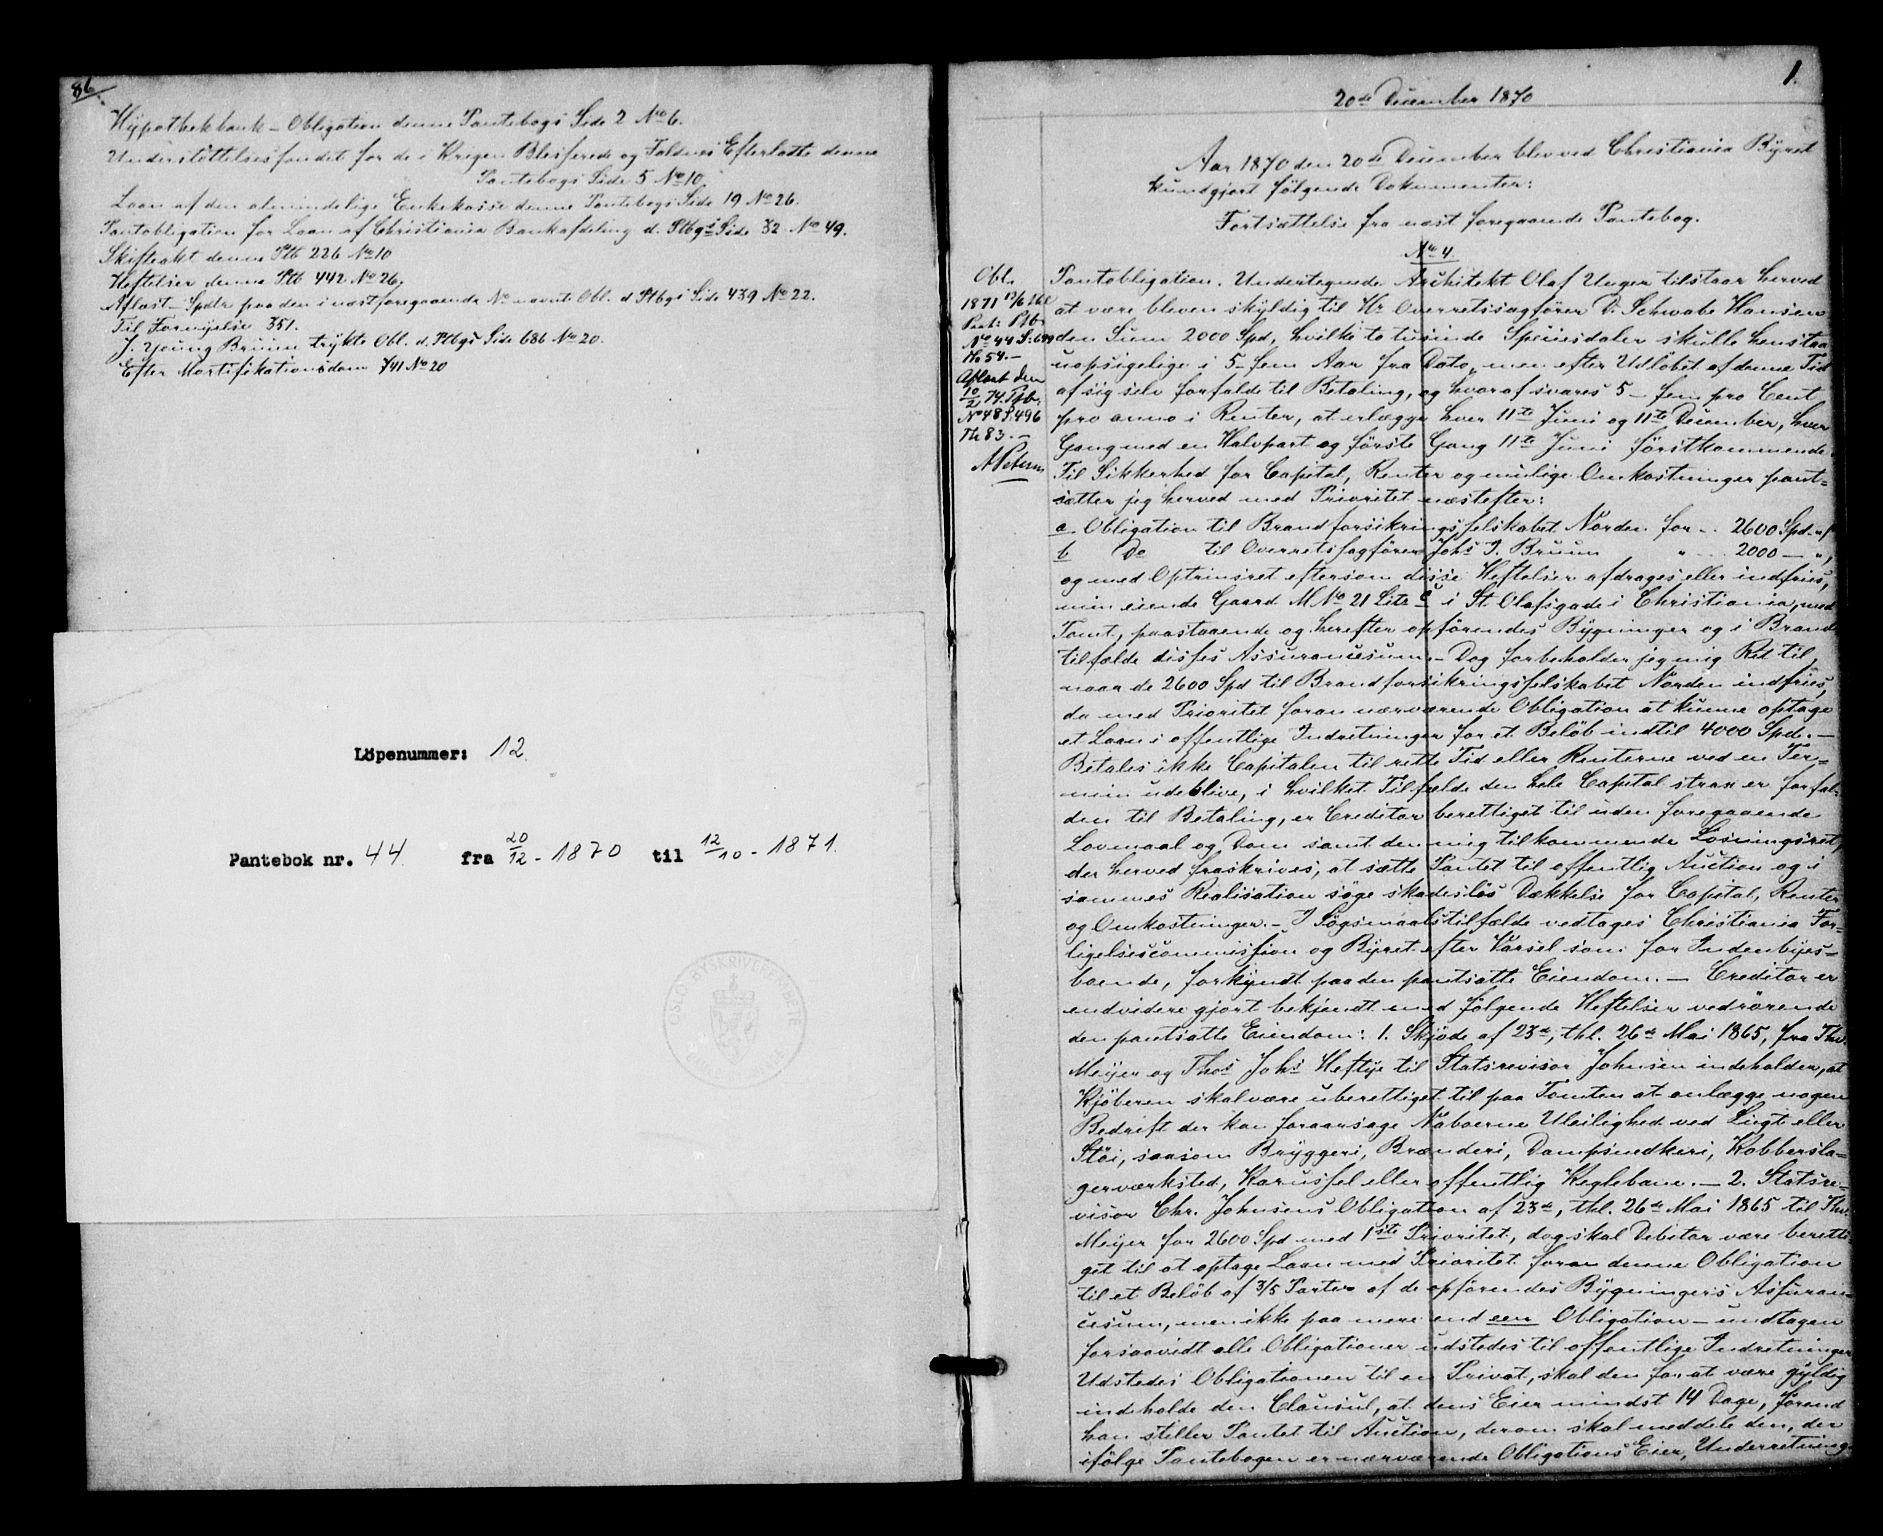 86.
Hypothekbank – Obligation denne Pantebogs Side 2 No 6.
Understöttelsesfondet for de i Krigen Blesserede og Faldnes Efterladte denne
Pantebogs Side 5 No 10.
Laan af den almindelige Enkekasse denne Pantebogs Side 19 No 26.
Pantobligation for Laan af Christiania Bankafdeling d. Ptbgs Side 32 No 49.
Skifteakt denne Ptb 226 No 10
Heftelser denne Ptb 442 No 26.
Aflæst – Spdlr paa den i næstforegaaende No nævnte Obl. d Ptbgs Side 439 No 22.
Til Fornyelse 351.
J. Young Bruun trykte Obl. d. Ptbgs Side 686 No 20.
Efter Mortifikationsdom 741 No 20
Löpenummer: 12.
Pantebok nr. 44. fra 20/12 - 1870 til 12/10 - 1871.
OSLO BYSKRIVEREMBETE
1.
20de December 1870
Aar 1870 den 20de December blev ved Christiania Byret
kundgjort følgende Dokumenter:
Fortsættelse fra næst foregaaende Pantebog.
No 4.
Obl.
1871 13/6
No 44 S. 649
No 54. –
Aflæst den
10/2 74. Ptb.
No 48 S. 496
Th 83. –
Pantobligation. Undertegnede Architekt Olaf Unger tilstaar herved
at være bleven skyldig til Hr Overretssagfører D. Schwabe Hansen
den Sum 2000 Spd, hvilke to tusinde Speciesdaler skulle henstaa
uopsigelige i 5 – fem Aar fra Dato, men efter Udløbet af denne Tid
af sig selv forfalde til Betaling, og hvoraf svares 5 – fem pro Cent
pro anno i Renter, at erlægge hver 11te Juni og 11te December, hver
Gang med en Halvpart og første Gang 11te Juni förstkommende.
Til Sikkerhed for Capital, Renter og mulige Omkostninger pant-
sætter jeg herved med Prioritet næstefter:
a Obligation til Brandforsikringsselskabet Norden for – 2600 Spd
b Do til Overretssagfører Johs J. Bruun " – 2000 – "
og med Optrinsret eftersom disse Heftelser afdrages eller indfries,
min eiende Gaard M No 21 Litr C i St. Olafsgade i Christiania, med
Tomt, paastaaende og herefter opförendes Bygninger og i Brand-
tilfælde disses Assurancesum. – Dog forbeholder jeg mig Ret til,
naar de 2600 Spd til Brandforsikringsselskabet Norden indfries,
da med Prioritet foran nærværende Obligation at kunne optage
et Laan i offentlige Indretninger for et Beløb indtil 4000 Spd. –
Betales ikke Capitalen til rette Tid eller Renterne ved en Ter-
min udeblive, i hvilket Tilfælde den hele Capital strax er forfal-
den til Betaling, er Creditor berettiget til uden foregaaende
Lovmaal og Dom samt den mig tilkommende Løsningsret,
der herved fraskrives, at sætte Pantet til offentlig Auction og i
sammes Realisation søge skadesløs Dækkelse for Capital, Renter
og Omkostninger. – I Søgsmaalstilfælde vedtages Christiania For-
ligelsescommission og Byret efter Varsel som for Indenbyes-
boende, forkyndt paa den pantsatte Eiendom. – Creditor er
endvidere gjort bekjendt med følgende Heftelser vedrörende
den pantsatte Eiendom: 1. Skjöde af 23de, thl. 26de Mai 1865, fra Thv.
Meyer og Thos Johs Heftye til Statsrevisor Johnsen indeholder, at
Kjøberen skal være uberettiget til paa Tomten at anlægge nogen
Bedrift der kan foraarsage Naboerne Uleilighed ved Lugt eller
Stöi, saasom Bryggeri, Brænderi, Dampsmedkeri, Kobbersla-
gerværksted, Karussel eller offentlig Keglebane. – 2. Statsre-
visor Chr. Johnsens Obligation af 23de, thl. 26de Mai 1865 til Thv.
Meyer for 2600 Spd med 1ste Prioritet, dog skal Debitor være beretti-
get til at optage Laan med Prioritet foran denne Obligation
til et Beløb af 3/5 Parter af de opförendes Bygningers Assuran-
cesum, men ikke paa mere end een Obligation – undtagen
forsaavidt alle Obligationer udstedes til offentlige Indretninger
Udstedes Obligationen til en Privat, skal den for at være gyldig
indeholde den Clausul, at dens Eier mindst 14 Dage, førend
han stiller Pantet til Auction, derom skal meddele den, der
ifölge Pantebogen er nærværende Obligations Eier, Underretning